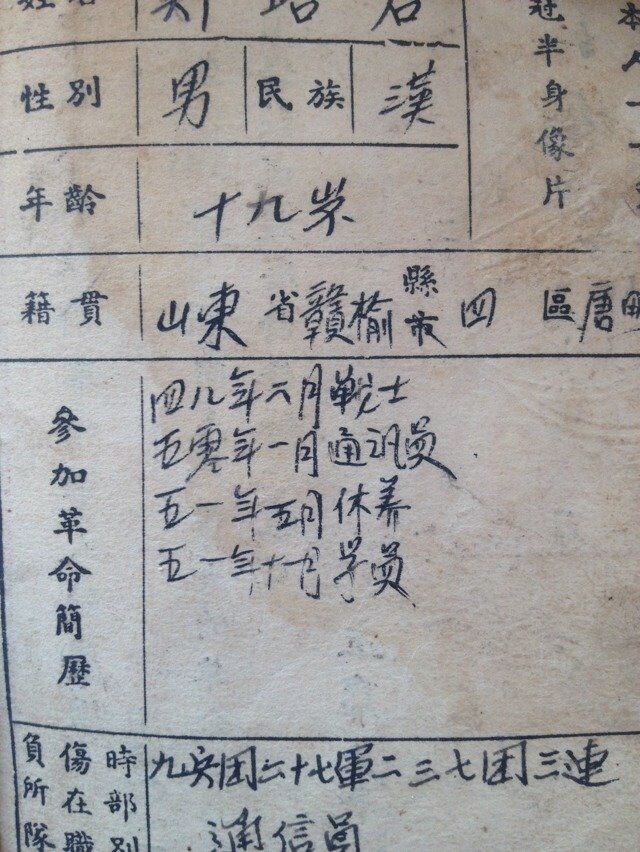 姓名
性別 男 民族 漢
年齡 十九岁
籍貫 山東省贛榆縣市四區唐
參加革命簡歷
四八年六月戰士
五零年一月通訊員
五一年五月休养
五一年十一月学員
負傷時所在部隊職別
九兵团六十七軍二七三团三連
通信員
冠半身像片
本人一